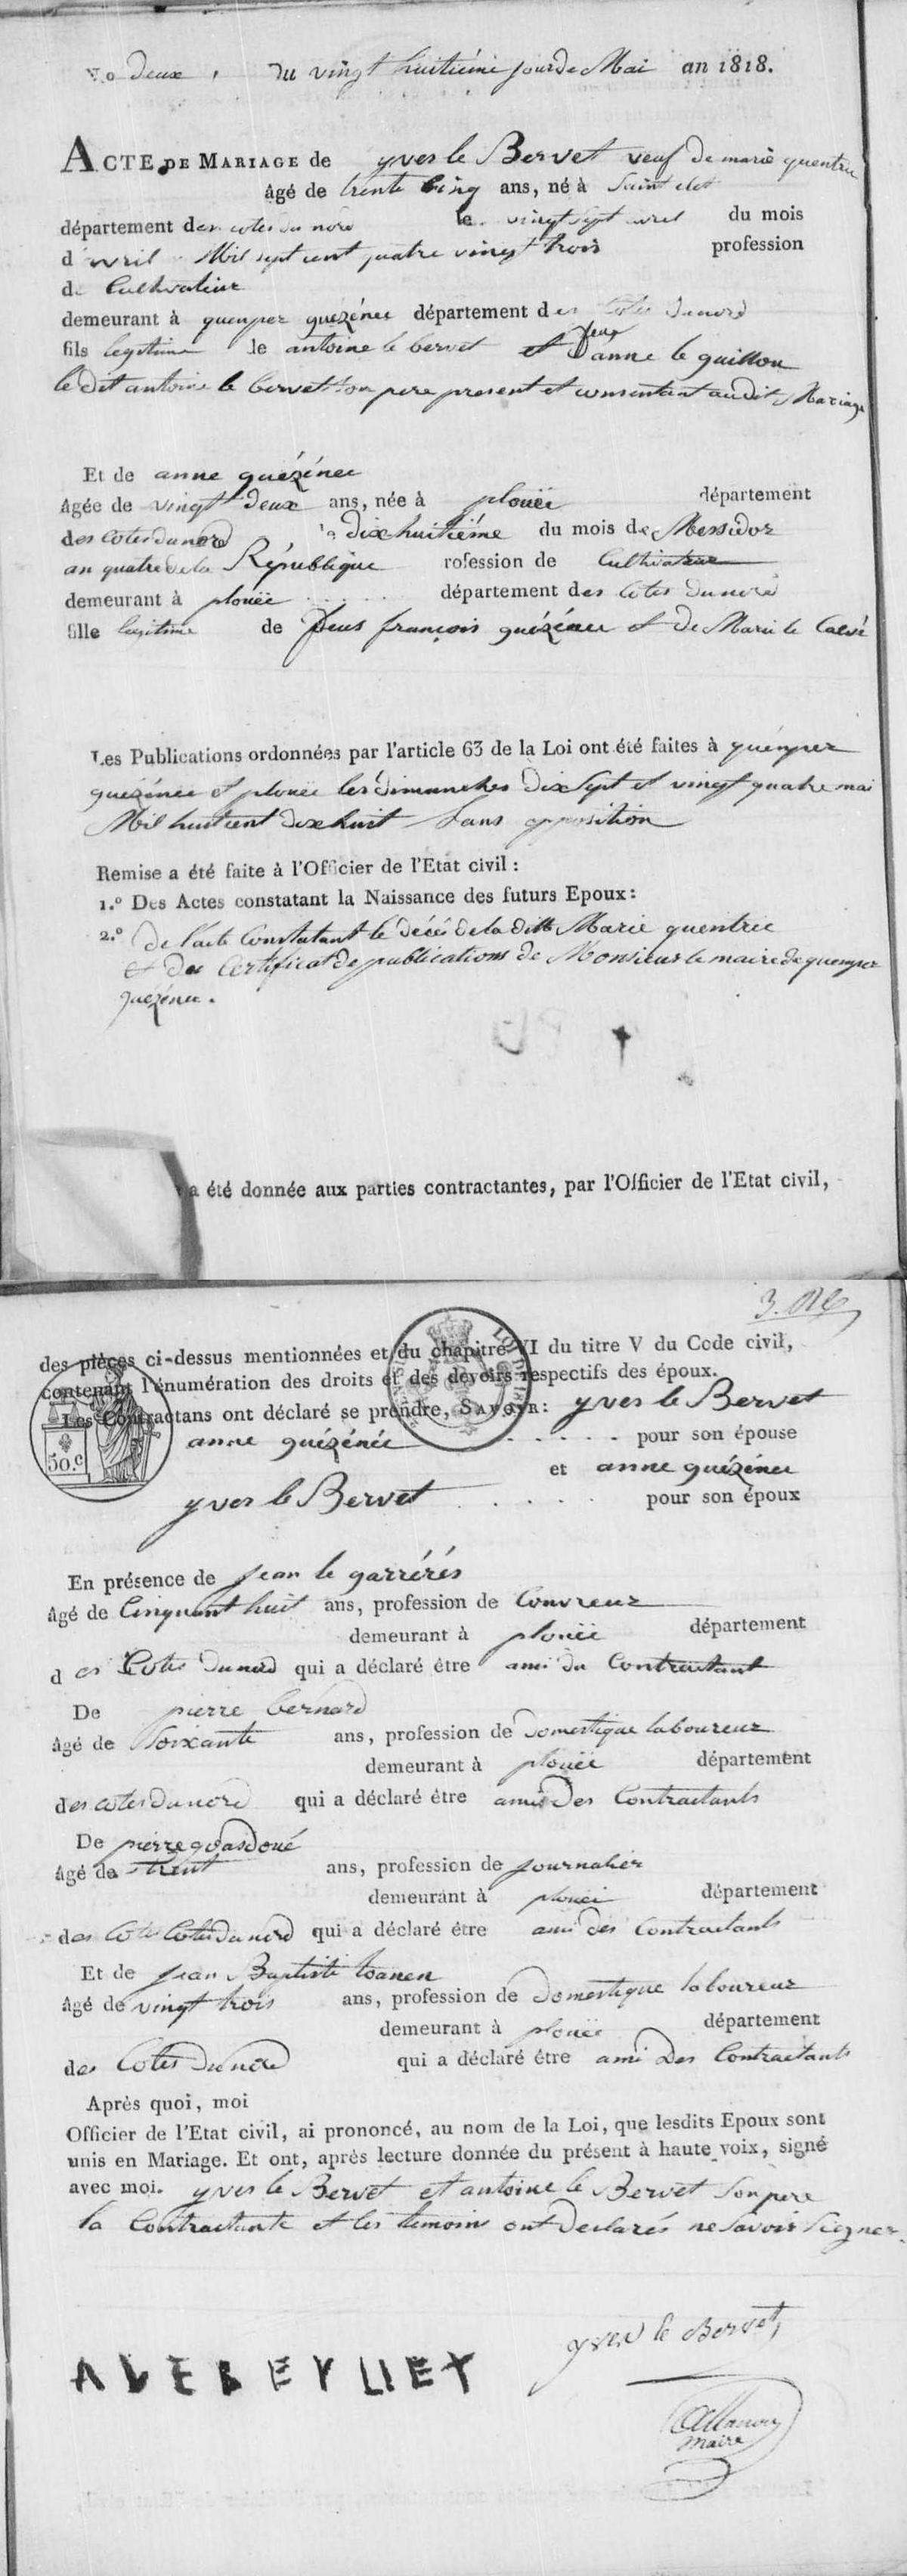 No deux, du vingt huitiéme jour de Mai an 1818.
ACTE DE MARIAGE de yves le Bervet veuf de marie quentric
âgé de trente cinq ans, né à Saint
département des cotes du nord le vingt sept avril du mois
d'avril Mil sept cent quatre vingt trois profession
de Cultivateur
demeurant à quemper guézénec département des cotes du nord
fils legitime de antoine le bervet et feue anne le guillou
le dit antoine le bervet son pere present et consentant audit Mariage
Et de anne guézénec
âgée de vingt deux ans, née à plouëc département
des cotes du nord le dix huitiéme du mois de Messidor
an quatre de la République rofession de Cultivatrice
demeurant à plouëc département des cotes du nord
fille legitime de feus françois guézénec et de Marie le Calvé
Les Publications ordonnées par l'article 63 de la Loi ont été faites à quemper
guezénec et plouëc les dimanches dix sept et vingt quatre mai
Mil huit cent dix huit Sans opposition
Remise a été faite à l'Officier de l'Etat civil :
1.º Des Actes constatant la Naissance des futurs Epoux :
2.º De l'acte Constatant le décés de la ditte Marie quentric
et du Certificat de publications de Monsieur le maire de quemper
guezénec.
a été donnée aux parties contractantes, par l'Officier de l'Etat civil,
3.
des pièces ci-dessus mentionnées et du chapitre VI du titre V du Code civil,
contenant l'énumération des droits et des devoirs respectifs des époux.
Les Contractans ont déclaré se prendre, SAVOIR : yves le Bervet
anne guézénec pour son épouse
50.c
et anne guézénec
yves le Bervet pour son époux
En présence de jean le garrérés
âgé de Cinquant huit ans, profession de Couvreur
demeurant à plouëc département
des Cotes du nord qui a déclaré étre ami du Contractant
De pierre bernard
âgé de Soixante ans, profession de Domestique laboureur
demeurant à plouëc département
des cotes du nord qui a déclaré étre ami Des Contractants
De pierre goasdoué
âgé de trent ans, profession de journalier
demeurant à plouëc département
des Cotes Cotes du nord qui a déclaré étre ami des Contractants
Et de jean Baptiste toanen
âgé de vingt trois ans, profession de Domestique laboureur
demeurant à plouëc département
des Cotes Du nord qui a déclaré étre ami Des Contractants
Après quoi, moi
Officier de l'Etat civil, ai prononcé, au nom de la Loi, que lesdits Epoux sont
unis en Mariage. Et ont, après lecture donnée du présent à haute voix, signé
avec moi. yves le Bervet et antoine le Bervet son pere
la Contractante et les temoins ont Declarés ne Savoir Signer.
yves le Bervet
A LE BERVET
maire